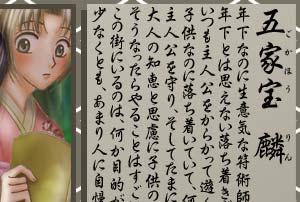 五家宝 麟
ごかほう りん
年下なのに生意気な符術師
年下とは思えない落ち着き
いつも主人公をからかって遊
子供なのに落ち着いていて、何
主人公を守り、そしてたまに
大人の知恵と思慮に子供の
そうなったらやることはすご
この街にいるのは、何か目的が
少なくとも、あまり人に自慢